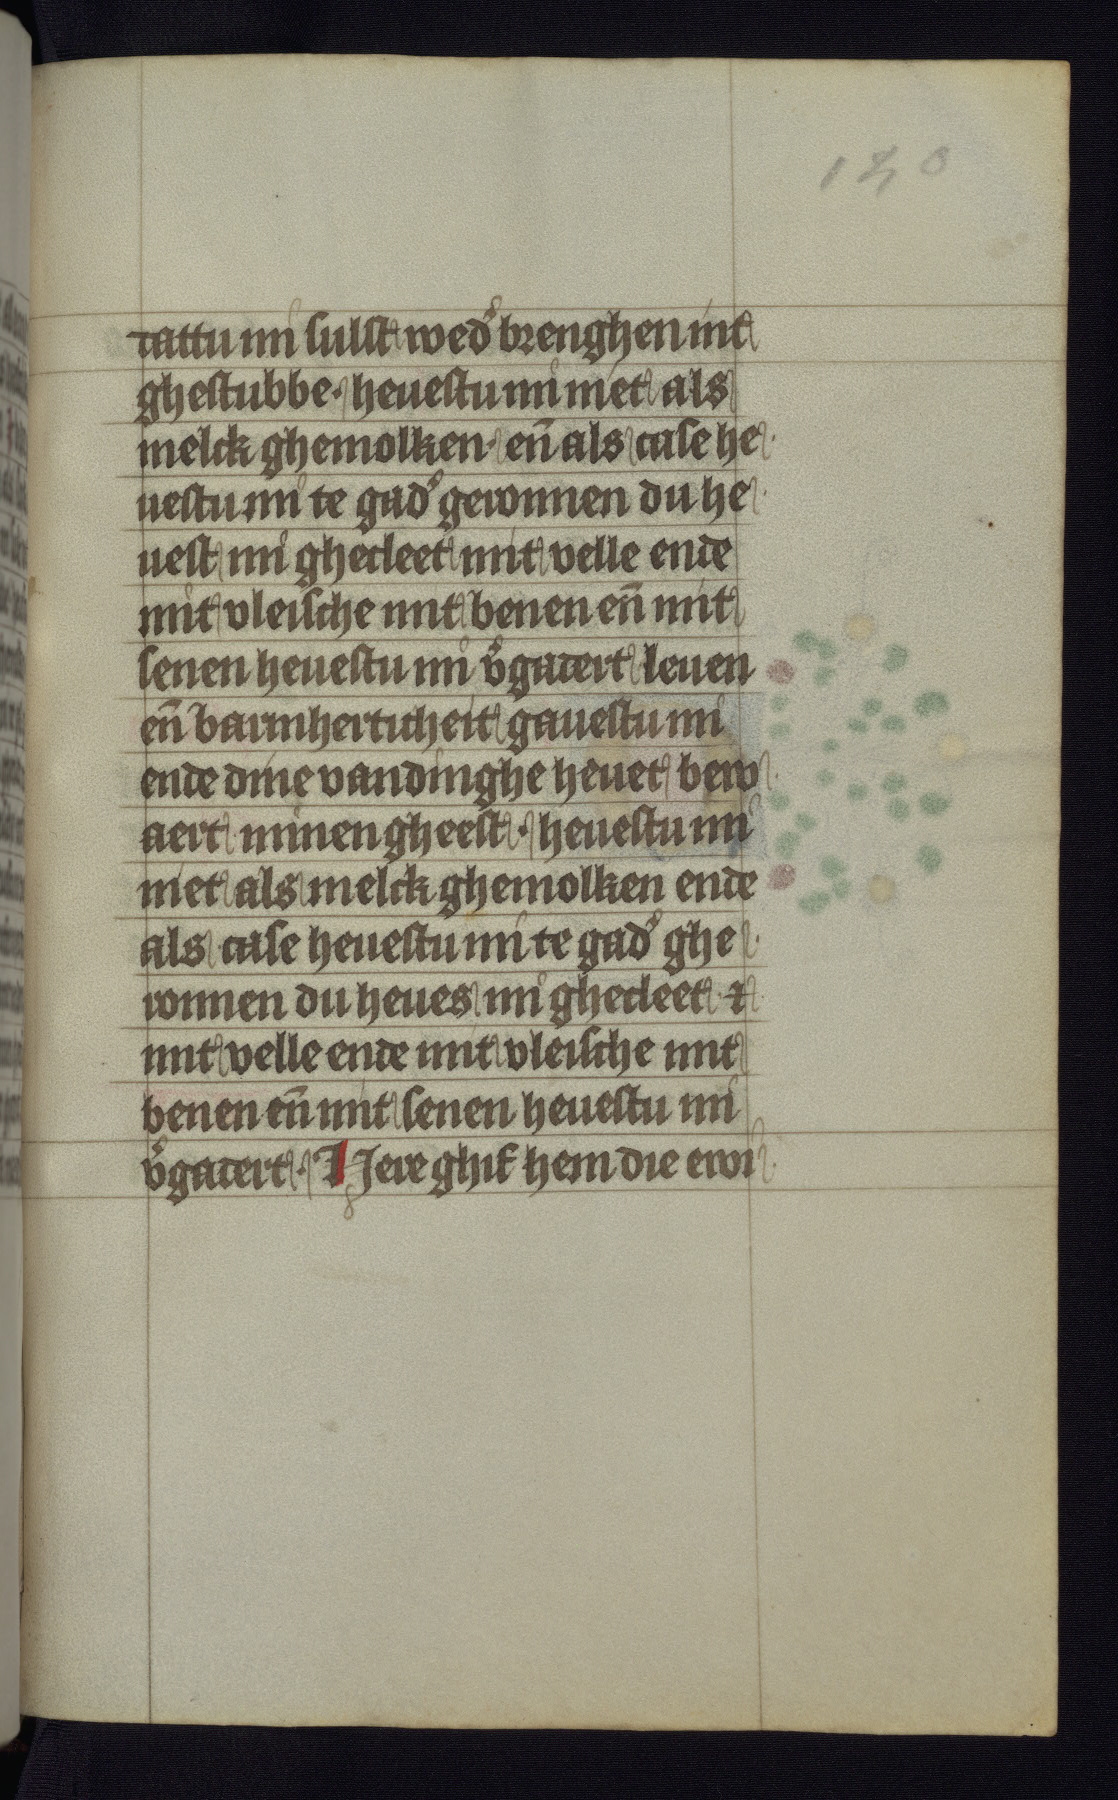 140
tattu mi sulst wed' brenghen int
ghestubbe · heuestu mi niet als
melck ghemolken · en̄ als case he
uestu mi te gad' geronnen du he
uest mi ghecleet mit velle ende
mit vleische mit benen en̄ mit
senen heuestu mi v'gadert leuen
en̄ barmherticheit gauestu mi
ende dine vandinghe heuet bew
aert minen gheest · heuestu mi
niet als melck ghemolken ende
als case heuestu mi te gad' ghe
ronnen du heues mi ghecleet ⁊
mit velle ende mit vleische mit
benen en̄ mit senen heuestu mi
v'gadert · Here ghif hem die ewi